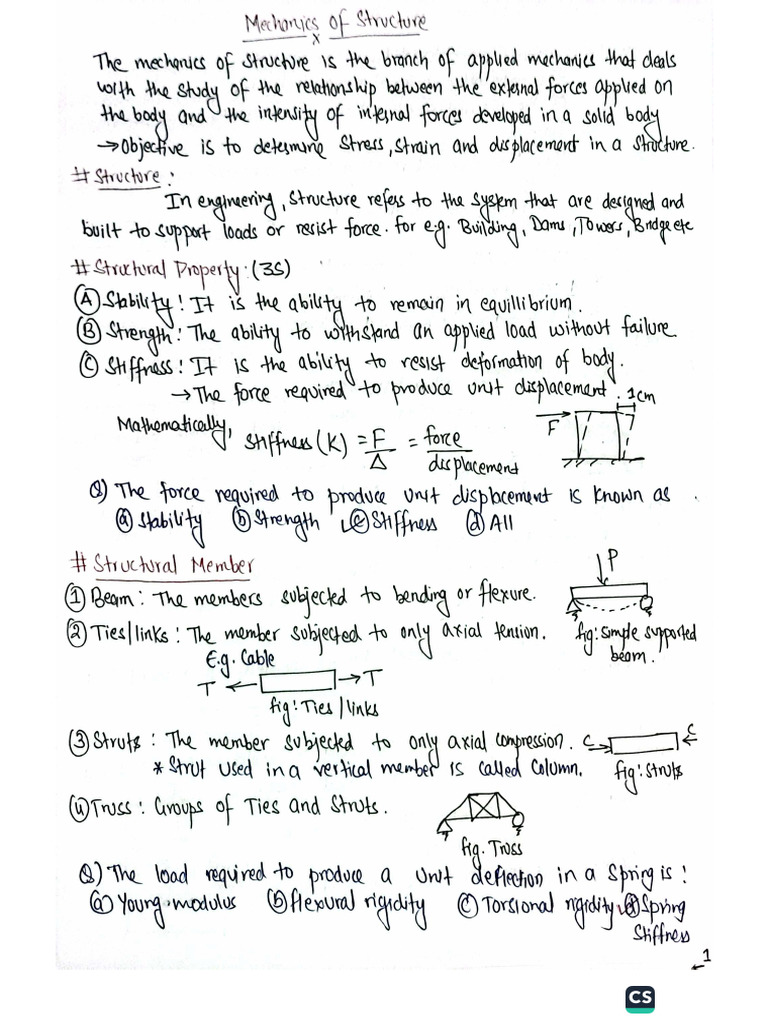 Mechanics of Structure
x
The mechanics of structure is the branch of applied mechanics that deals
with the study of the relationship between the external forces applied on
the body and the intensity of internal forces developed in a solid body
→ Objective is to determine stress, strain and displacement in a structure.
# Structure:
In engineering, structure refers to the system that are designed and
built to support loads or resist force. for e.g. Building, Dams, Towers, Bridge etc
# Structural Property: (3S)
(A) Stability: It is the ability to remain in equillibrium.
(B) Strength: The ability to withstand an applied load without failure
(C) Stiffness: It is the ability to resist deformation of body.
→ The force required to produce unit displacement.
1cm
F
Mathematically, Stiffness (K) = F/Δ = force/displacement
Q) The force required to produce unit displacement is known as .
(a) Stability (b) Strength (c) Stiffness (d) All
# Structural Member
P
(1) Beam: The members subjected to bending or flexure.
(2) Ties/links: The member subjected to only axial tension.
fig: Simple supported
beam.
E.g. Cable
T T
fig: Ties/links
(3) Struts: The member subjected to only axial compression.
C C
* Strut used in a vertical member is called column.
fig: struts
(4) Truss: Groups of Ties and Struts.
fig. Truss
Q) The load required to produce a unit deflection in a spring is:
(a) Young modulus (b) flexural rigidity (c) Torsional rigidity (d) Spring
Stiffness
1
CS